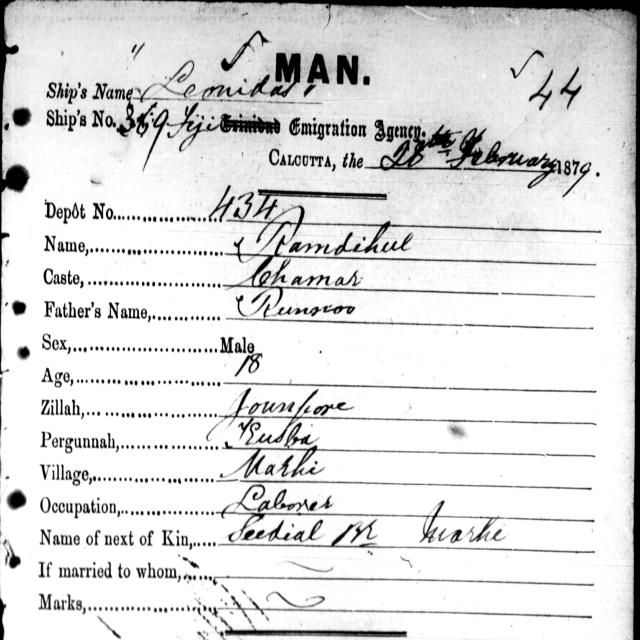 MAN. 44
Ship's Name "Leonidas"
Ship's No. Fiji Trinidad Emigration Agency.
CALCUTTA, the 28th February 1879.
Depôt No. 434
Name, Ramdihul
Caste, Chamar
Father's Name, Runnoo
Sex, Male
Age, 18
Zillah, Jounpore
Pergunnah, Kusba
Village, Marhi
Occupation, Laborer
Name of next of Kin, Seedial Br Marhe
If married to whom,
Marks,